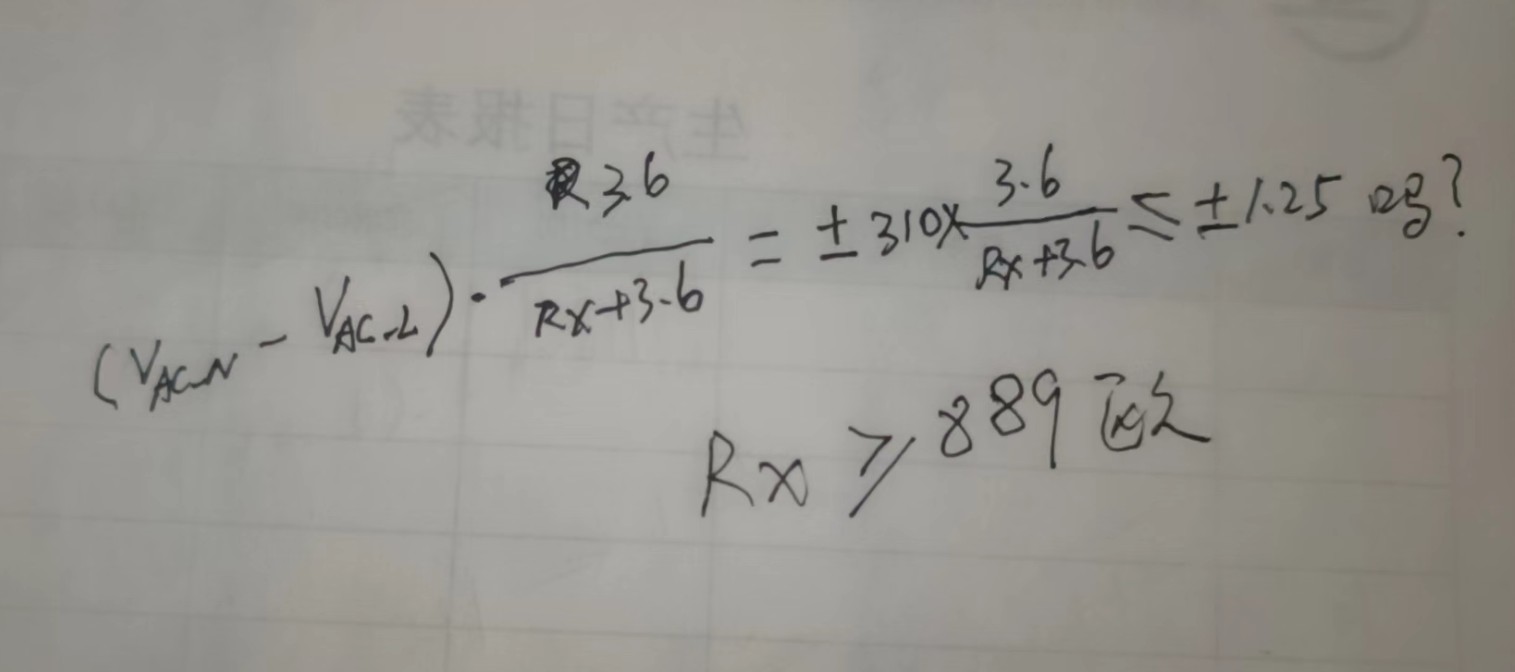 生产日报表
(V_AC-N - V_AC-L) · 3.6/(Rx+3.6) = ±310× 3.6/(Rx+3.6) ≤ ±1.25
Rx ≥ 889 欧